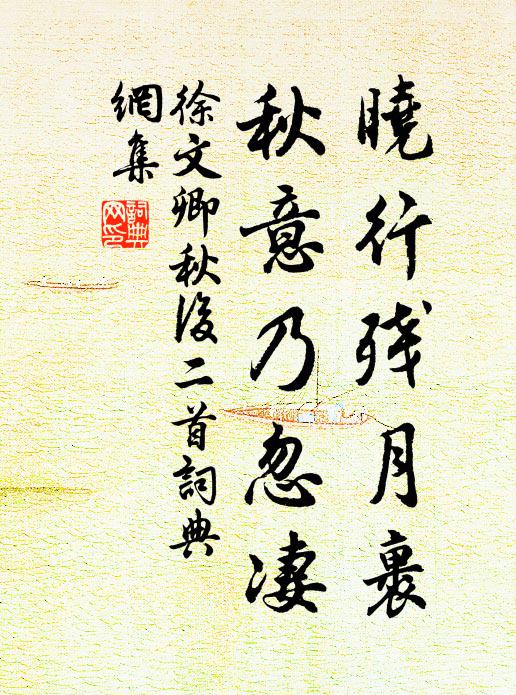 曉行殘月裏
秋意乃忽凄
徐文卿秋後二首詞典
網集
詞典
网印